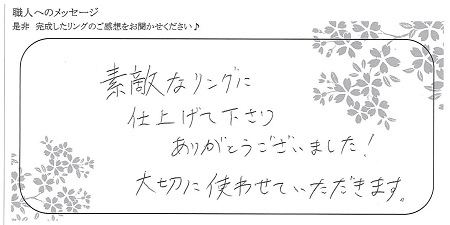 職人へのメッセージ
是非 完成したリングのご感想をお聞かせください♪
素敵なリングに
仕上げて下さり
ありがとうございました!
大切に使わせていただきます。